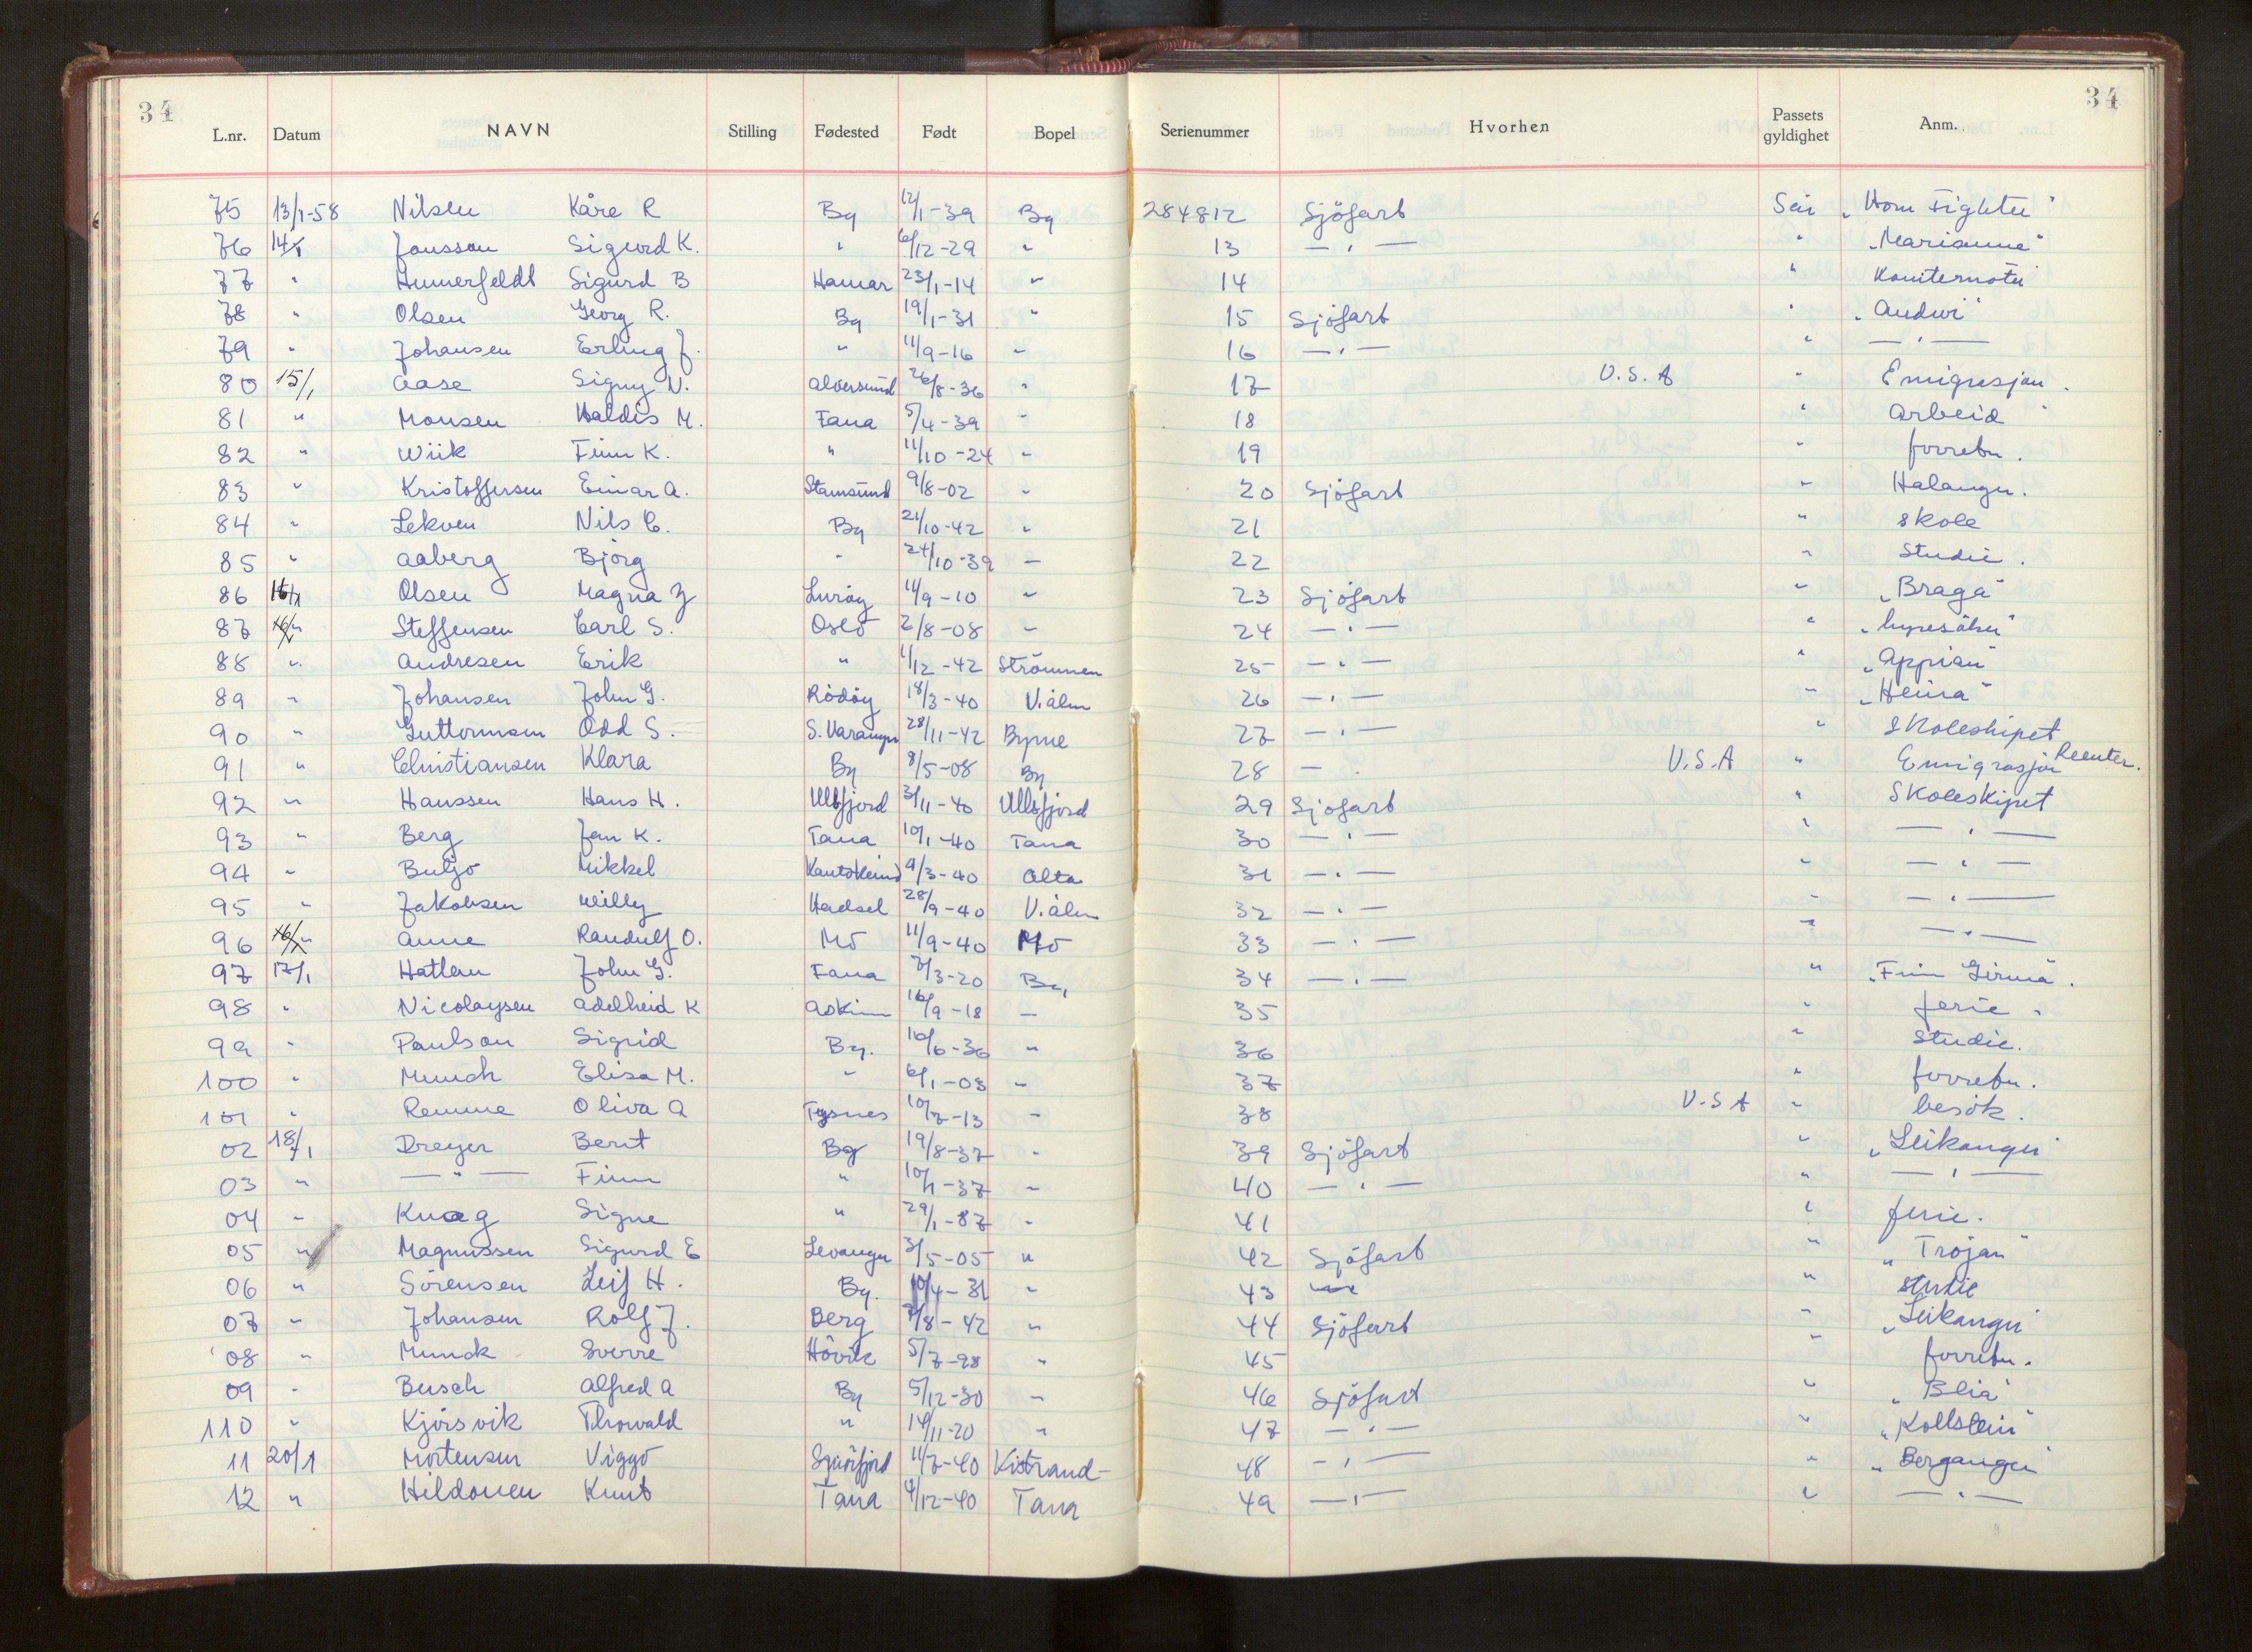 34 34
L.nr. Datum NAVN Stilling Fødested Født Bopel Serienummer Hvorhen Passets gyldighet Anm.
75 13/1-58 Nilsen Kåre R Bg 12/1-39 Bg 284812 Sjöfart Sei „Horn Fighter"
76 14/1 Jonsson Sigurd K. " 6/12-29 " 13 — " — " „Marianne"
77 " Hunerfeldt Sigurd B Hamar 23/1-14 " 14 "
78 " Olsen Georg R. Bg 19/1-31 " 15 Sjöfart " „Audun"
79 " Johansen Erling J. " 11/9-16 " 16 — " — " — " —
80 15/1 Aase Signy N. Alversund 26/8-36 " 17 U.S.A " Emigrasjon.
81 " Monsen Haldis M. Fana 5/4-39 " 18 " Arbeid
82 " Wiik Finn K. " 11/10-24 " 19 " forretn.
83 " Kristoffersen Einar A. Stamsund 9/8-02 " 20 Sjöfart " Halanger.
84 " Lekven Nils C. Bg 21/10-42 " 21 " skole
85 " Aaberg Björg " 24/10-39 — 22 " Studie.
86 16/1 Olsen Magna J Luröy 11/9-10 " 23 Sjöfart " „Braga"
87 16/1 " Steffensen Carl S. Oslo 2/8-08 " 24 — " — "
88 " Andresen Erik " 1/12-42 Strömmen 25 — " — " „Appian"
89 " Johansen John G. Rödöy 18/3-40 V.ålm 26 — " — " „Heina"
90 " Guttormsen Odd S. S. Varanger 28/11-42 Byrne 27 — " — " Skoleskipet
91 " Christiansen Klara Bg 8/5-08 Bg 28 — U.S.A " Emigrasjon Reenter.
92 " Hanssen Hans H. Ullsfjord 3/11-40 Ullsfjord 29 Sjöfart " Skoleskipet
93 " Berg Jan K. Tana 10/1-40 Tana 30 — " — " — " —
94 " Buljo Mikkel Kautokeino 9/3-40 Alta 31 — " — " — " —
95 " Jakobsen Willy Hadsel 28/9-40 V.ålm 32 — " — " — " —
96 16/1 " Anne Randulf O. Mo 11/9-40 Mo 33 — " — " — " —
97 17/1 Hatlen John G. Fana 7/3-20 Bg 34 — " — "
98 " Nicolaysen Adelheid K Askim 16/9-18 — 35 " ferie.
99 " Paulson Sigrid Bg. 16/6-36 " 36 " Studie.
100 " Munch Elisa M. " 6/1-03 " 37 " forretn.
101 " Remme Oliva A Tysnes 10/7-13 " 38 U.S.A " besök.
02 18/1 Dreyer Berit Bg 19/8-37 " 39 Sjöfart " „Leikanger"
03 " — " — Finn " 10/11-37 " 40 — " — " — " —
04 " Knag Signe " 29/1-87 " 41 " ferie.
05 " Magnussen Sigurd E Levanger 3/5-05 " 42 Sjöfart " „Trojan"
06 " Sörensen Leif H. Bg. 10/4-31 " 43 " studie
07 " Johansen Rolf J. Berg 7/8-42 " 44 Sjöfart " „Leikanger"
08 " Munck Sverre Hövik 5/7-98 " 45 " forretn.
09 " Busch Alfred A Bg 5/12-30 " 46 Sjöfart " „Blia"
110 " Kjörsvik Thorvald " 14/11-20 " 47 — " — " „Kollstein"
11 20/1 Mortensen Viggo 11/7-40 Kistrand 48 — " — " „Berganger"
12 " Hildonen Knut Tana 4/12-40 Tana 49 — " — " — " —